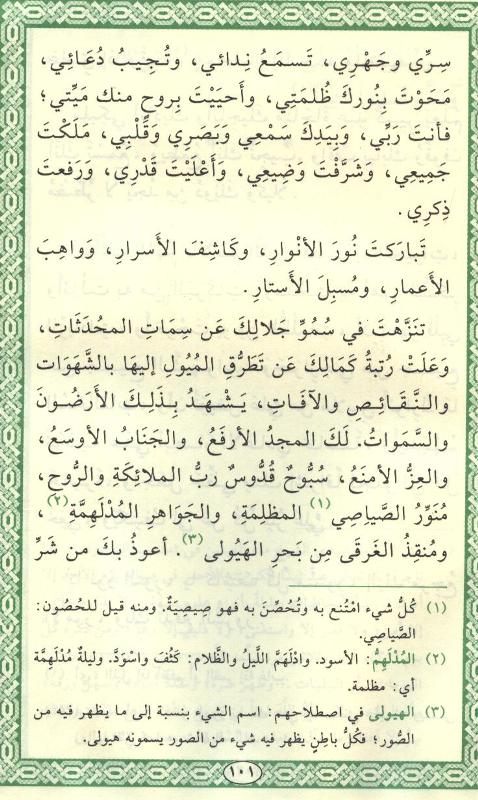 سِرِّي وجَهْرِي، تَسمَعُ نِدائي، وتُجِيبُ دُعَائِي،
مَحَوْتَ بِنُورِكَ ظُلمَتِي، وأَحيَيْتَ بِروحٍ منك مَيِّتي؛
فأنتَ رَبِّي، وبِيَدِكَ سَمْعِي وبَصَرِي وقَلْبِي، مَلَكْتَ
جَمِيعِي، وَشَرَّفْتَ وَضِيعِي، وأَعْلَيْتَ قَدْرِي، وَرَفعتَ
ذِكرِي.
تَبارَكتَ نُورَ الأنْوارِ، وكَاشِفَ الأسرارِ، وَواهِبَ
الأعمارِ، ومُسبِلَ الأستارِ.
تنَزَّهْتَ في سُمُوِّ جَلالِكَ عَن سِمَاتِ المحُدَثَاتِ،
وَعَلَتْ رُتبةُ كمَالِكَ عَن تَطَرُّقِ المُيُولِ إليهَا بالشَّهَوَات
والنَّقَائِصِ والآفَاتِ، يَشْهَدُ بِذَلِكَ الأَرَضُونَ
والسَّمَواتُ. لَكَ المجدُ الأرفَعُ، والجَنَابُ الأوسَعُ،
والعِزُّ الأمنَعُ، سُبُّوحٌ قُدُّوسٌ ربُّ الملائِكَةِ والرُّوحِ،
مُنَوِّرُ الصَّيَاصِي(١) المظلِمَةِ، والجَوَاهرِ المُدْلَهِمَّةِ(٢)،
ومُنقِذُ الغَرقَى مِن بَحرِ الهَيُولى(٣). أعوذُ بكَ من شَرِّ
(١) كُلُّ شيء امْتُنع به وتُحُصِّنَ به فهو صِيصِيَةٌ. ومنه قيل للحُصُون:
الصَّيَاصِي.
(٢) المُدْلَهِمُّ: الأسود. وادْلَهَمَّ اللَّيلُ والظَّلام: كَثُفَ واسْوَدَّ. وليلةٌ مُدْلَهِمَّة
أي: مظلمة.
(٣) الهيولى في اصطلاحهم: اسم الشيء بنسبة إلى ما يظهر فيه من
الصُّور؛ فكُلُّ باطِنٍ يظهر فيه شيء من الصور يسمونه هيولى.
١٠١